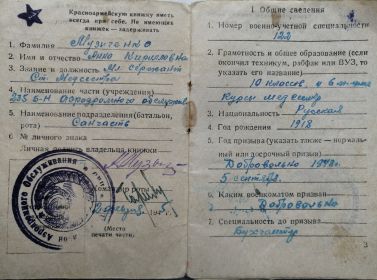 Красноармейскую книжку иметь
всегда при себе. Не имеющих
книжек — задерживать
1. Фамилия Музыченко
2. Имя и отчество Анна Кирилловна
3. Звание и должность Мл. сержант
Ст. Медсестра
4. Наименование части (учреждения)
225 Б-Н Аэродромного обслуж.
5. Наименование подразделения (батальон,
рота) Санчасть
6. № личного знака
Личная подпись владельца книжки
Командир роты
(Место
печати части)
Аэродромного Обслуживания
I. Общие сведения
1. Номер военно-учетной специальности
122
2. Грамотность и общее образование (если
окончил техникум, рабфак или ВУЗ, то
указать его название)
10 классов, и
Курсы медсестер
3. Национальность Русская
4. Год рождения 1918
5. Год призыва (указать также — нормаль-
ный или досрочный призыв)
Добровольно
5 сентября.
6. Каким военкоматом призван
Добровольно
7. Специальность до призыва
Бухгалтер
3